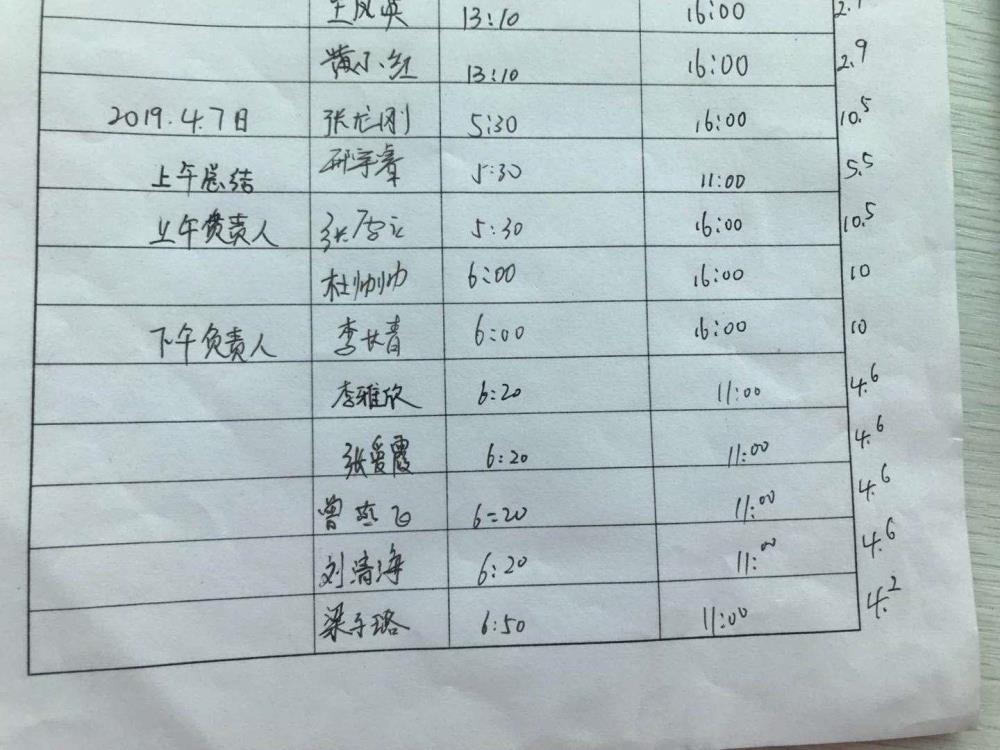 王凤英 13:10 16:00
黄小红 13:10 16:00 2.9
2019.4.7日 张龙刚 5:30 16:00 10.5
上午总结 邢宇睿 5:30 11:00 5.5
上午负责人 张 5:30 16:00 10.5
杜帅帅 6:00 16:00 10
下午负责人 李长青 6:00 16:00 10
李雅欣 6:20 11:00 4.6
张爱霞 6:20 11:00 4.6
曾燕飞 6:20 11:00 4.6
刘清海 6:20 11:00 4.6
梁子璐 6:50 11:00 4.2